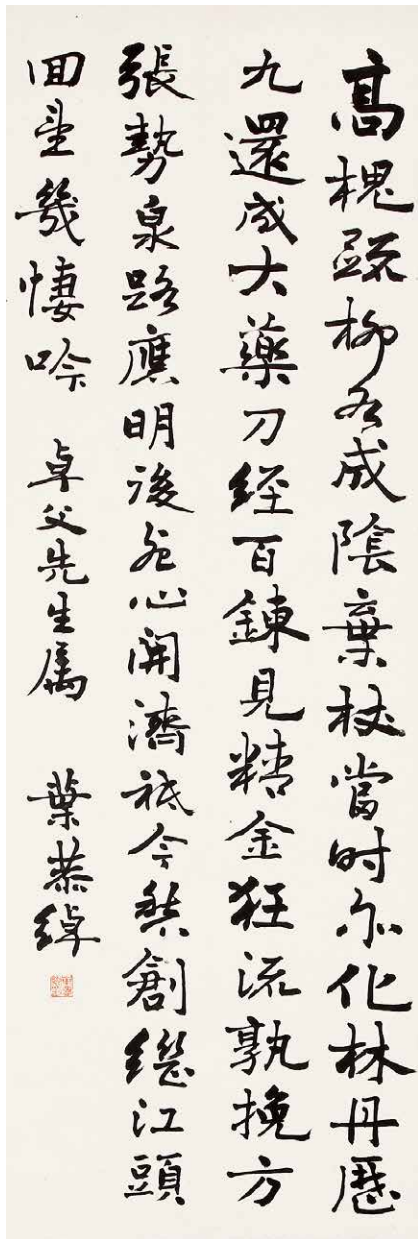 高槐疏柳各成陰棄杖當时亦化林丹歷
九還成大藥刀經百鍊見精金狂流孰挽方
張勢泉路應明後死心開濟祗今愁創繼江頭
回望幾悽吟 卓父先生属 葉恭綽